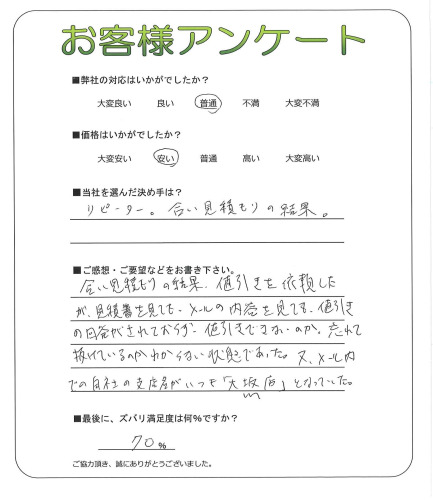 お客様アンケート
■弊社の対応はいかがでしたか？
大変良い 良い 普通 不満 大変不満
■価格はいかがでしたか？
大変安い 安い 普通 高い 大変高い
■当社を選んだ決め手は？
リピーター。合い見積もりの結果。
■ご感想・ご要望などをお書き下さい。
合い見積もりの結果、値引きを依頼した
が、見積書を見ても、メールの内容を見ても、値引き
の回答がされておらず、値引きできないのか、忘れて
抜けているのかわからない状態であった。又、メール内
での自社の支店屋がいつも「大坂店」となっていた。
■最後に、ズバリ満足度は何%ですか？
70 %
ご協力頂き、誠にありがとうございました。